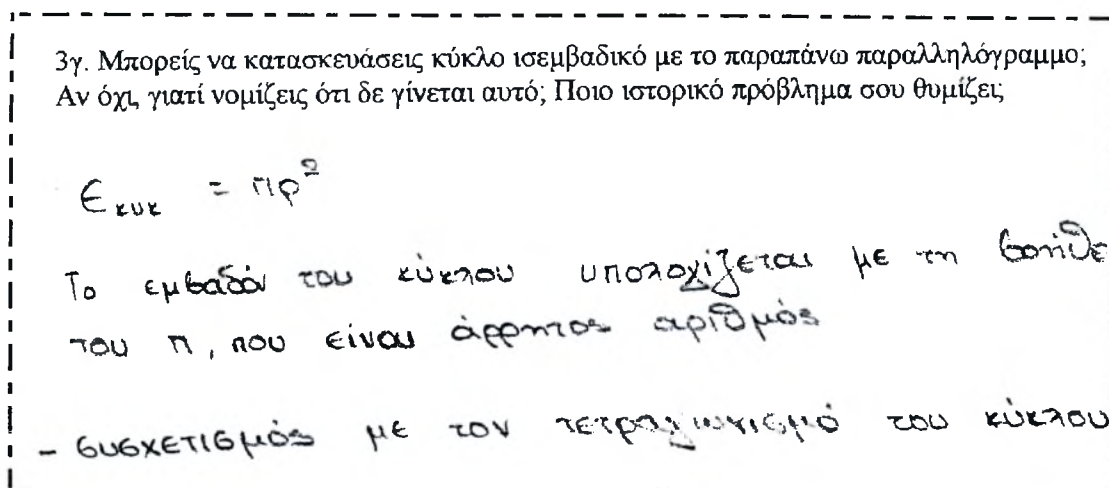 3γ. Μπορείς να κατασκευάσεις κύκλο ισεμβαδικό με το παραπάνω παραλληλόγραμμο;
Αν όχι, γιατί νομίζεις ότι δε γίνεται αυτό; Ποιο ιστορικό πρόβλημα σου θυμίζει;
Ε κυκ = πρ²
Το εμβαδόν του κύκλου υπολογίζεται με τη βοήθε
του π, που είναι άρρητος αριθμός
- συσχετισμός με τον τετραγωνισμό του κύκλου